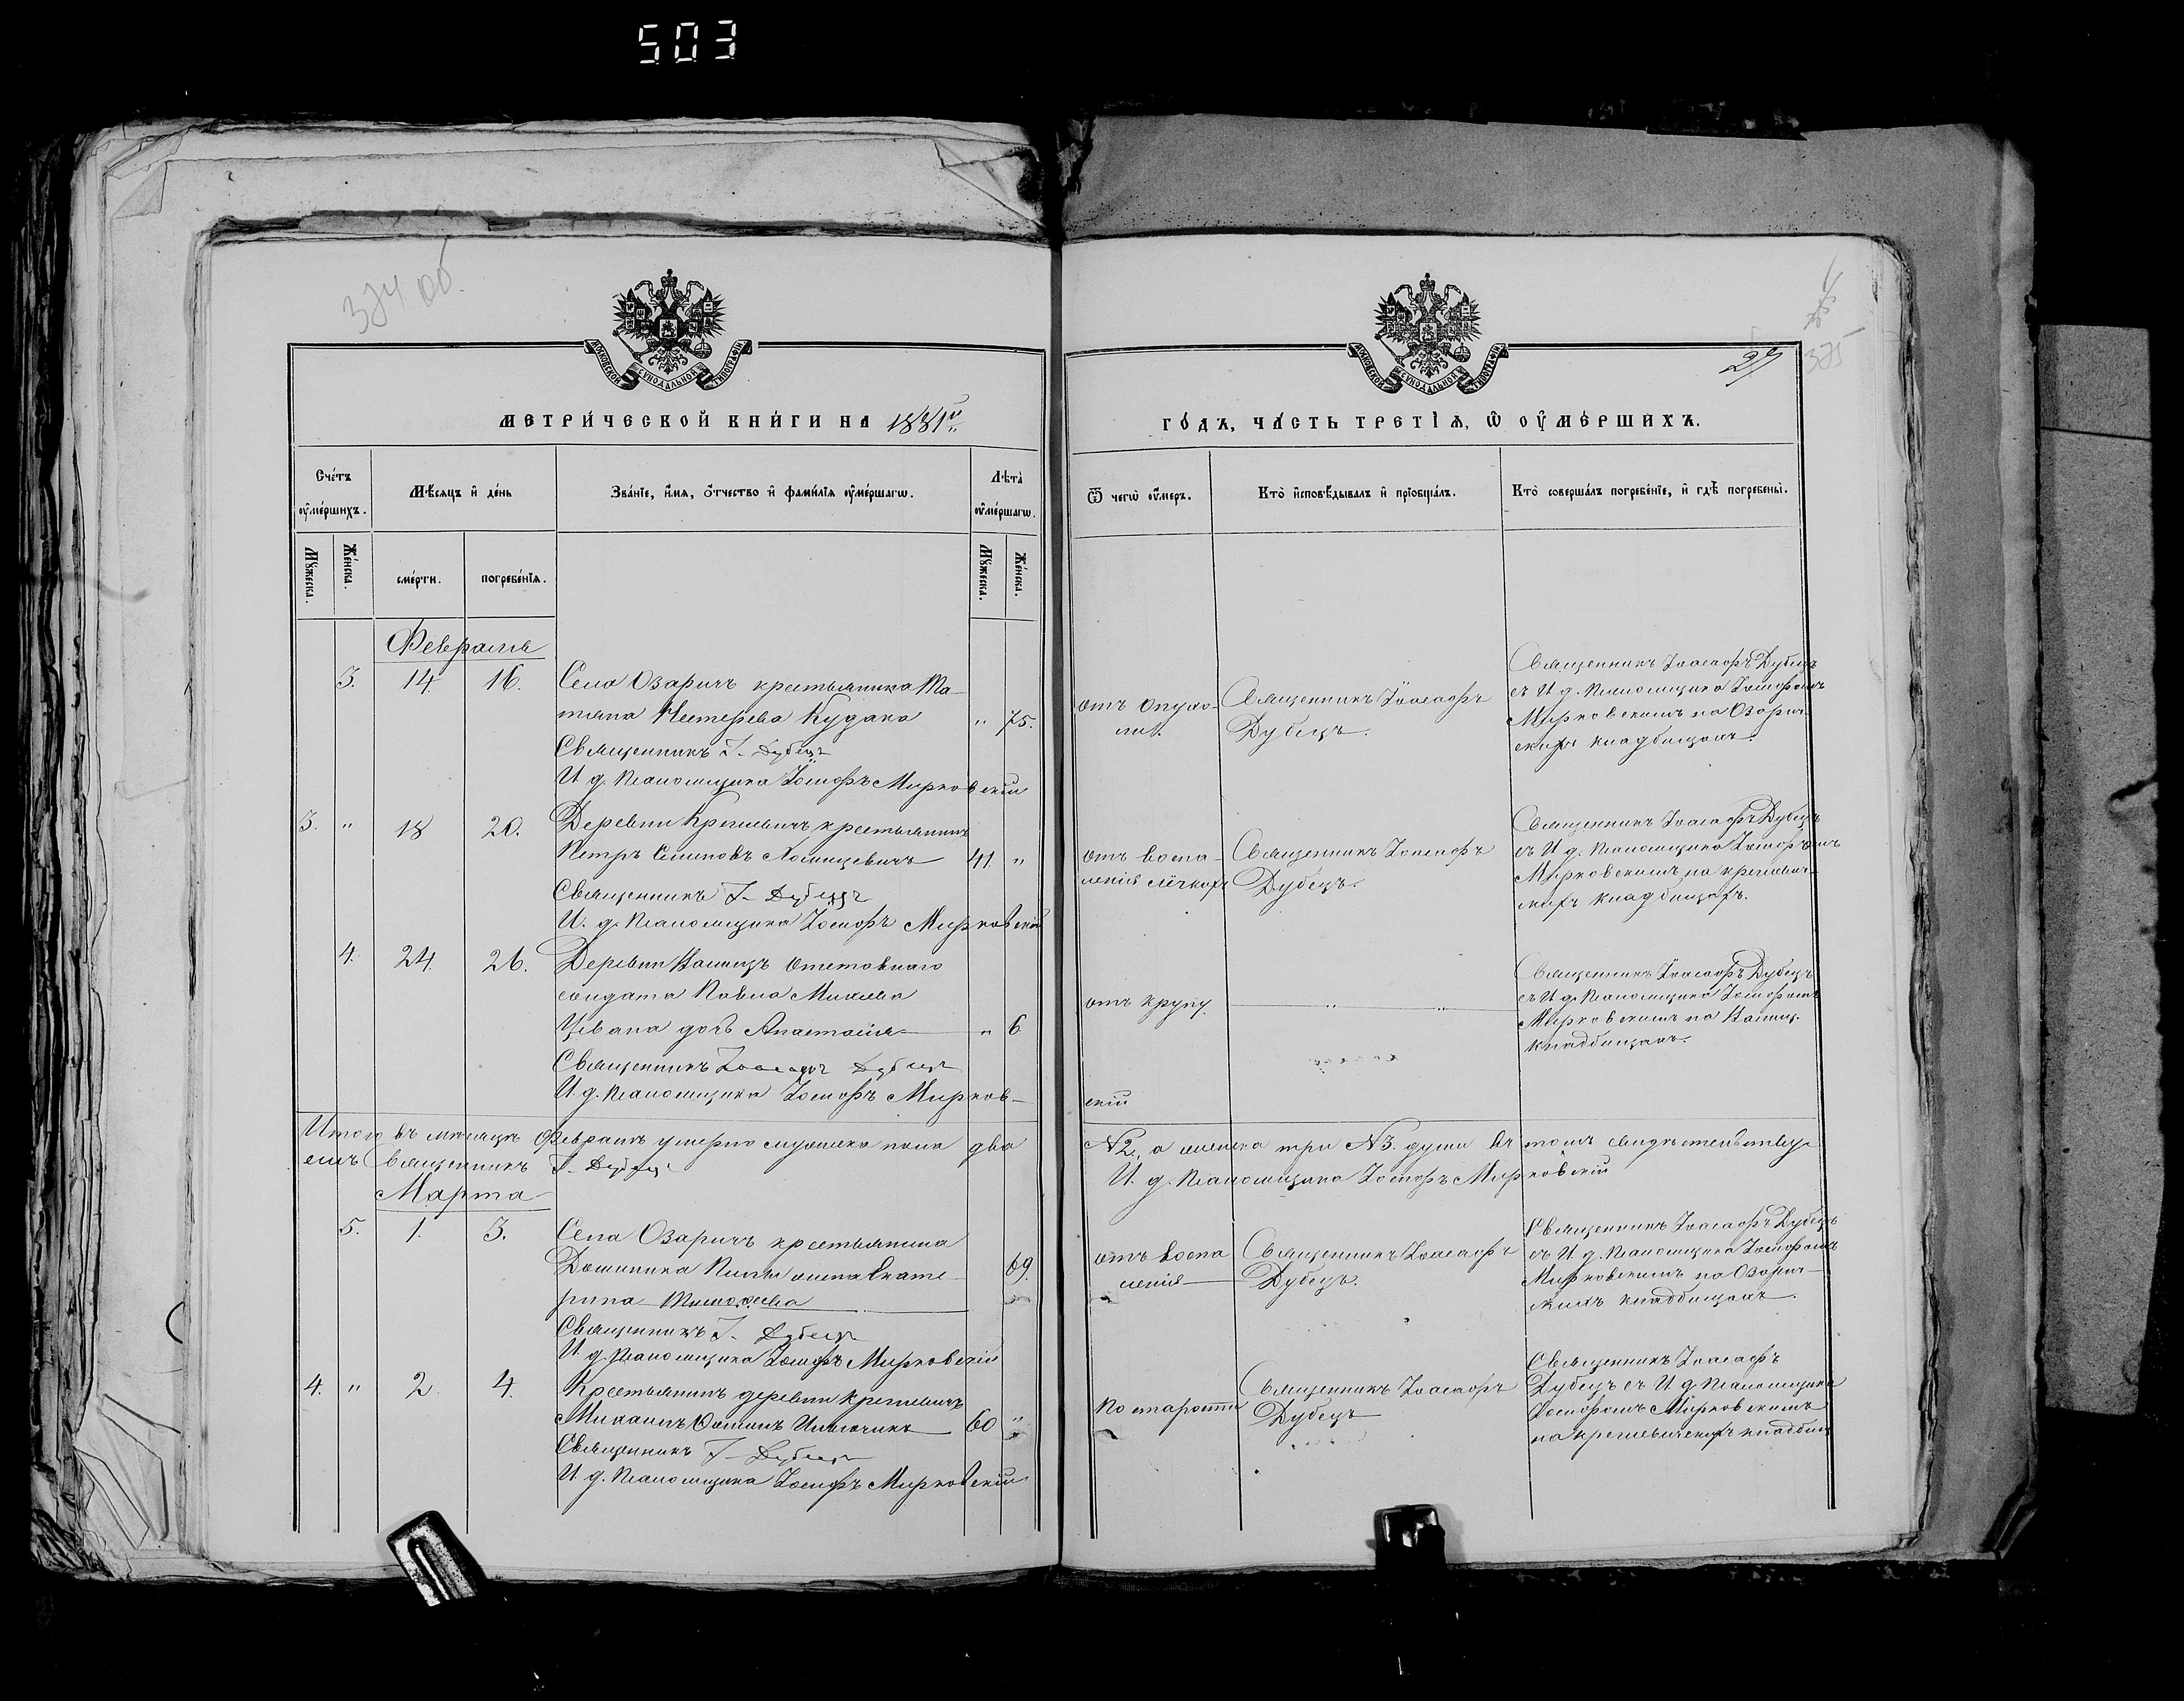 503
374 об.
27
375
МОСКОВСКОЙ СѴНОДАЛЬНОЙ ТИПОГРАФІИ
МОСКОВСКОЙ СѴНОДАЛЬНОЙ ТИПОГРАФІИ
МЕТРИ́ЧЕСКОЙ КНИ́ГИ НА 1881й
ГО́ДЪ, ЧА́СТЬ ТРЕТІ́Я, Ѡ ОУ҆МЕ́РШИХЪ.
Сче́тъ оу҆ме́ршихъ.
Мѣ́сяцъ и҆ де́нь
Зва́нїе, и҆́мя, ѻ҆́тчество и҆ фами́лїя оу҆ме́ршагѡ.
Лѣ́та оу҆ме́ршагѡ.
Ѿ чегѡ̀ оу҆́меръ.
Кто̀ и҆сповѣ́дывалъ и҆ прїобща́лъ.
Кто̀ соверша́лъ погребе́нїе, и҆ гдѣ̀ погребены̀.
Мꙋ́жеска.
Же́нска.
сме́рти.
погребе́нїя.
Мꙋ́жеска.
Же́нска.
Февраль
3. 14 16. Села Озаричъ крестьяника Та-
тіана Нестерева Кудака " 75.
Священникъ І. Дубецъ
И д. Псаломщика Іосифъ Мирковскій
отъ опухо-
ли.
Священникъ Іоасафъ
Дубецъ.
Священникъ Іоасафъ Дубецъ
съ И д. Псаломщика Іосифомъ
Мирковскимъ на Озарич-
скихъ кладбищахъ.
3. " 18 20. Деревни Кремевичъ крестьянинъ
Петръ Семиновъ 41. "
Священникъ І. Дубецъ
И. д. Псаломщика Іосифъ Мирковскій
отъ воспа-
ленія лёгкихъ
Священникъ Іоасафъ
Дубецъ.
Священникъ Іоасафъ Дубецъ
съ И д. Псаломщика Іосифомъ
Мирковскимъ на кремевич-
скихъ кладбищахъ.
4. 24. 26. Деревни отставнаго
солдата Павла
дочь Анастасія " 6
Священникъ Іоасафъ Дубецъ
И д. Псаломщика Іосифъ Мирков-
скій
отъ крупу.
" "
Священникъ Іоасафъ Дубецъ
съ И д. Псаломщика Іосифомъ
Мирковскимъ на
кладбищахъ.
Итого въ мѣсяцѣ Февралѣ умерло мужеска пола два №2, а женска три №3. души въ томъ свидѣтельству-
емъ Священникъ І. Дубецъ И. д. Псаломщика Іосифъ Мирковскій
Марта
5. 1. 3. Села Озаричъ крестьянина
Доминика жена Екате-
рина Тимофеева 69.
Священникъ І. Дубецъ
И д. Псаломщика Іосифъ Мирковскій
отъ воспа
ленія
Священникъ Іоасафъ
Дубецъ.
Священникъ Іоасафъ Дубецъ
съ И д. Псаломщика Іосифомъ
Мирковскимъ на Озарич-
скихъ кладбищахъ.
4. " 2. 4. Крестьянинъ деревни Кремевичъ
Михаилъ 60 "
Священникъ І. Дубецъ
И д. Псаломщика Іосифъ Мирковскій
По старости
Священникъ Іоасафъ
Дубецъ
Священникъ Іоасафъ
Дубецъ съ И д. Псаломщика
Іосифомъ Мирковскимъ
на кремевичскихъ кладбищ